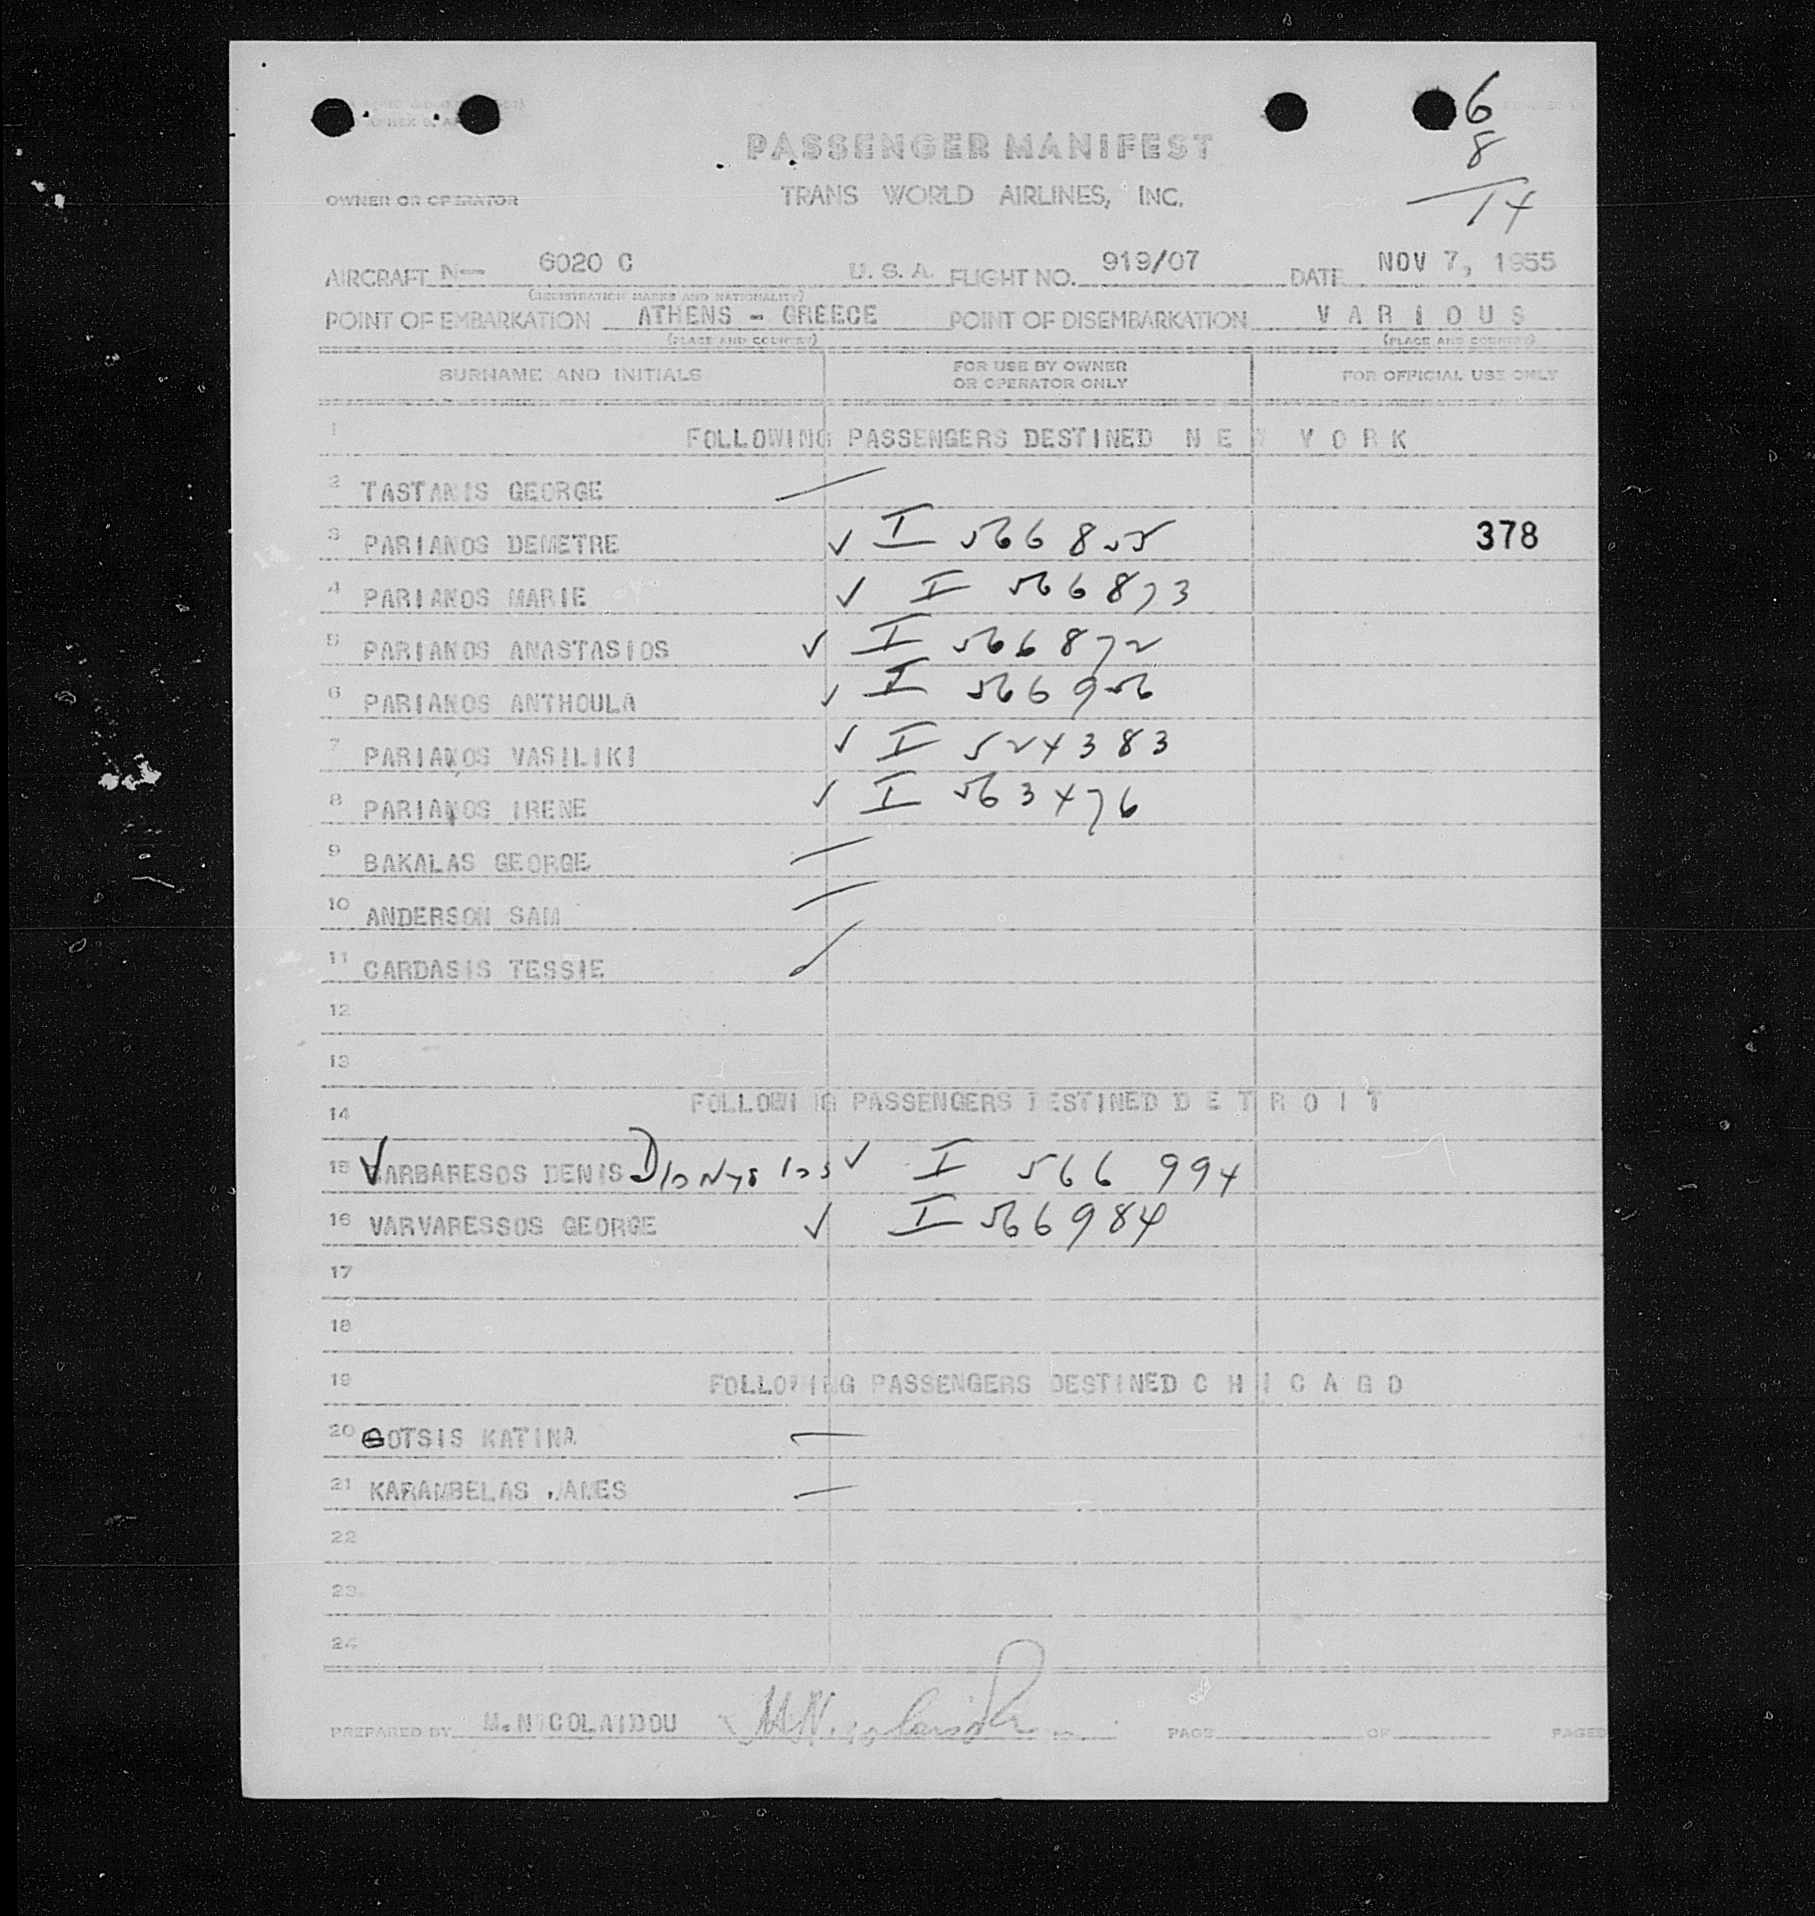 6
8
14
PASSENGER MANIFEST
OWNER OR OPERATOR TRANS WORLD AIRLINES, INC.
AIRCRAFT N- 6020 C U. S. A. FLIGHT NO. 919/07 DATE NOV 7, 1955
(REGISTRATION MARKS AND NATIONALITY)
POINT OF EMBARKATION ATHENS - GREECE POINT OF DISEMBARKATION V A R I O U S
(PLACE AND COUNTRY) (PLACE AND COUNTRY)
SURNAME AND INITIALS FOR USE BY OWNER OR OPERATOR ONLY FOR OFFICIAL USE ONLY
1 FOLLOWING PASSENGERS DESTINED N E W Y O R K
2 TASTANIS GEORGE —
3 PARIANOS DEMETRE ✓ I 566855 378
4 PARIANOS MARIE ✓ I 566873
5 PARIANOS ANASTASIOS ✓ I 566872
6 PARIANOS ANTHOULA ✓ I 566956
7 PARIANOS VASILIKI ✓ I 524383
8 PARIANOS IRENE ✓ I 563476
9 BAKALAS GEORGE —
10 ANDERSON SAM —
11 CARDASIS TESSIE
12
13
14 FOLLOWING PASSENGERS DESTINED D E T R O I T
15 VARBARESOS DENIS Dionysios ✓ I 566994
16 VARVARESSOS GEORGE ✓ I 566984
17
18
19 FOLLOWING PASSENGERS DESTINED C H I C A G O
20 GOTSIS KATINA —
21 KARAMBELAS JAMES —
22
23
24
PREPARED BY M.NICOLAIDOU M Nicolaidou PAGE OF PAGES